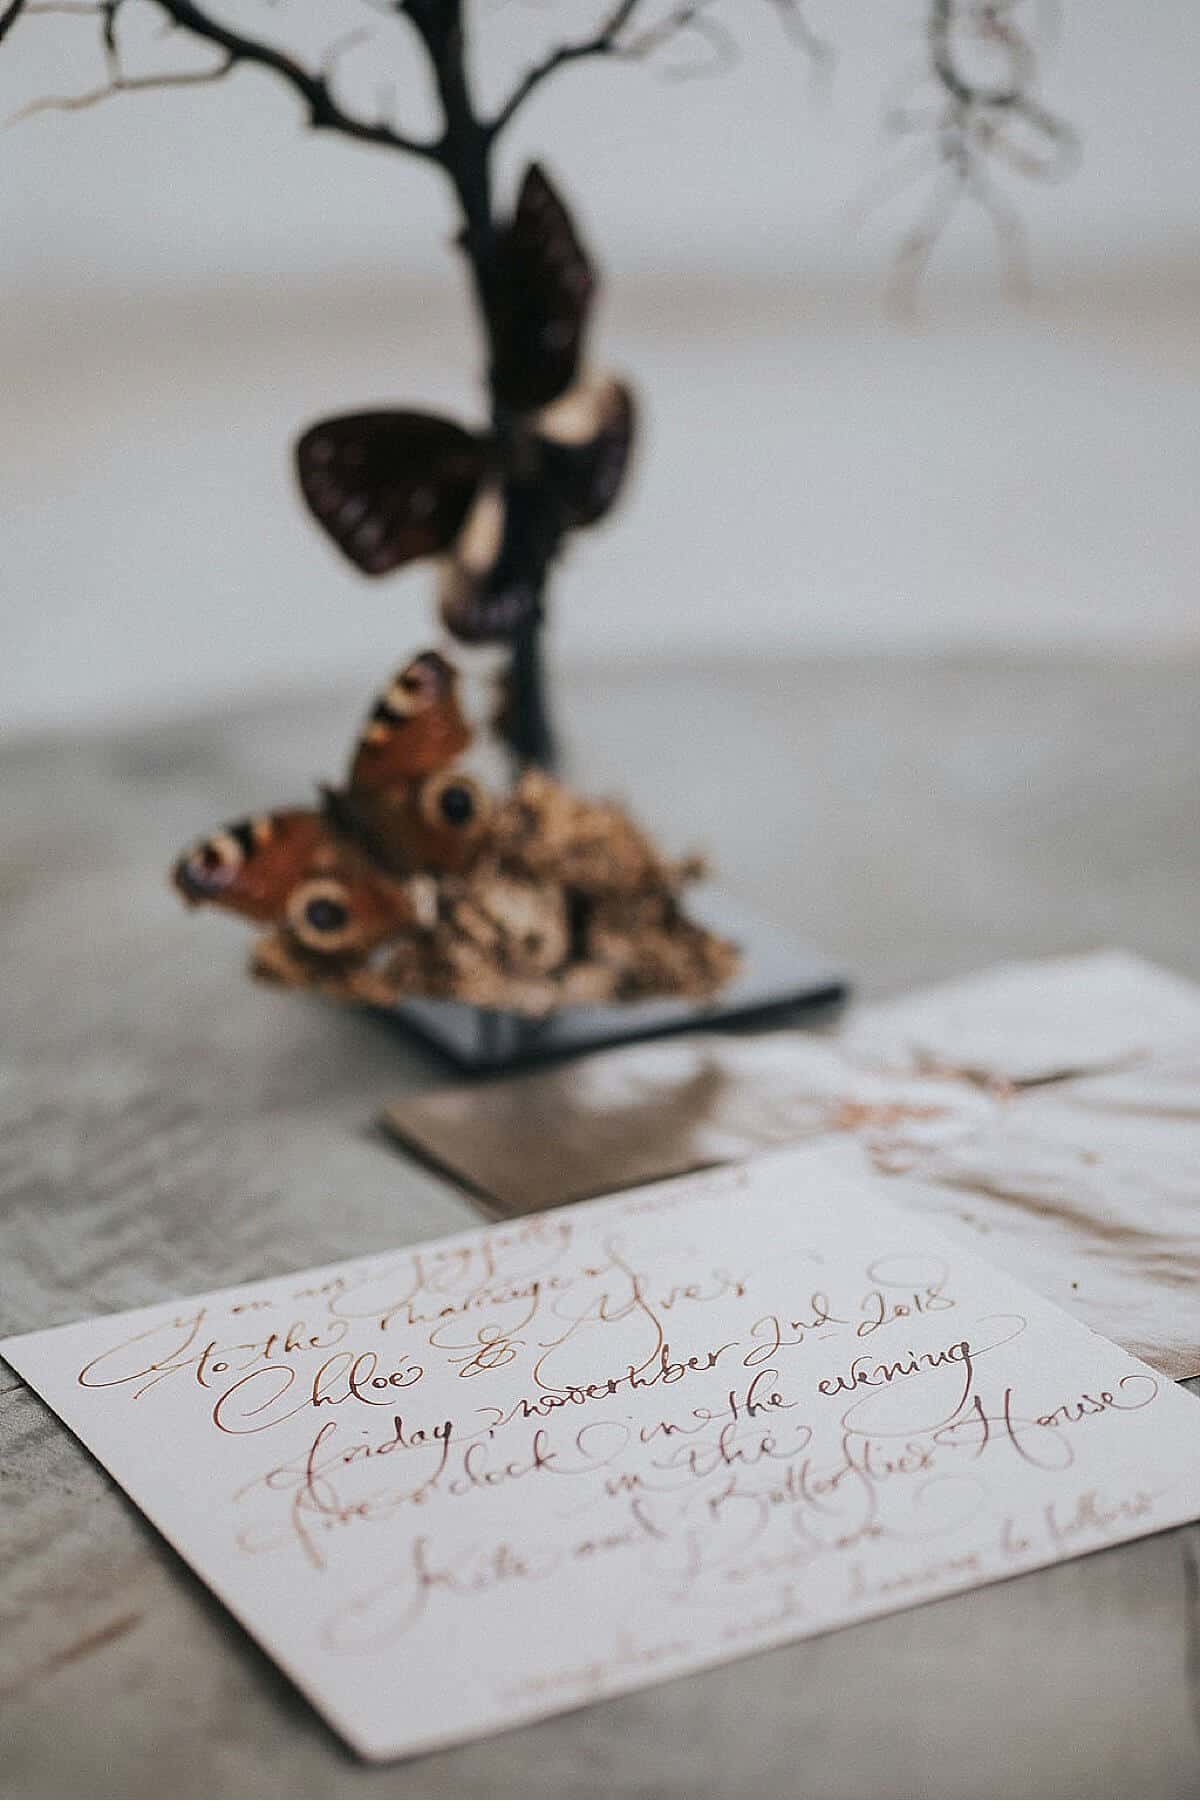 you are joyfully invited
to the marriage of
Chloé & Yves
friday, november 2nd 2018
five o'clock in the evening
in the
Kite and Butterflies House
London
reception and dancing to follow